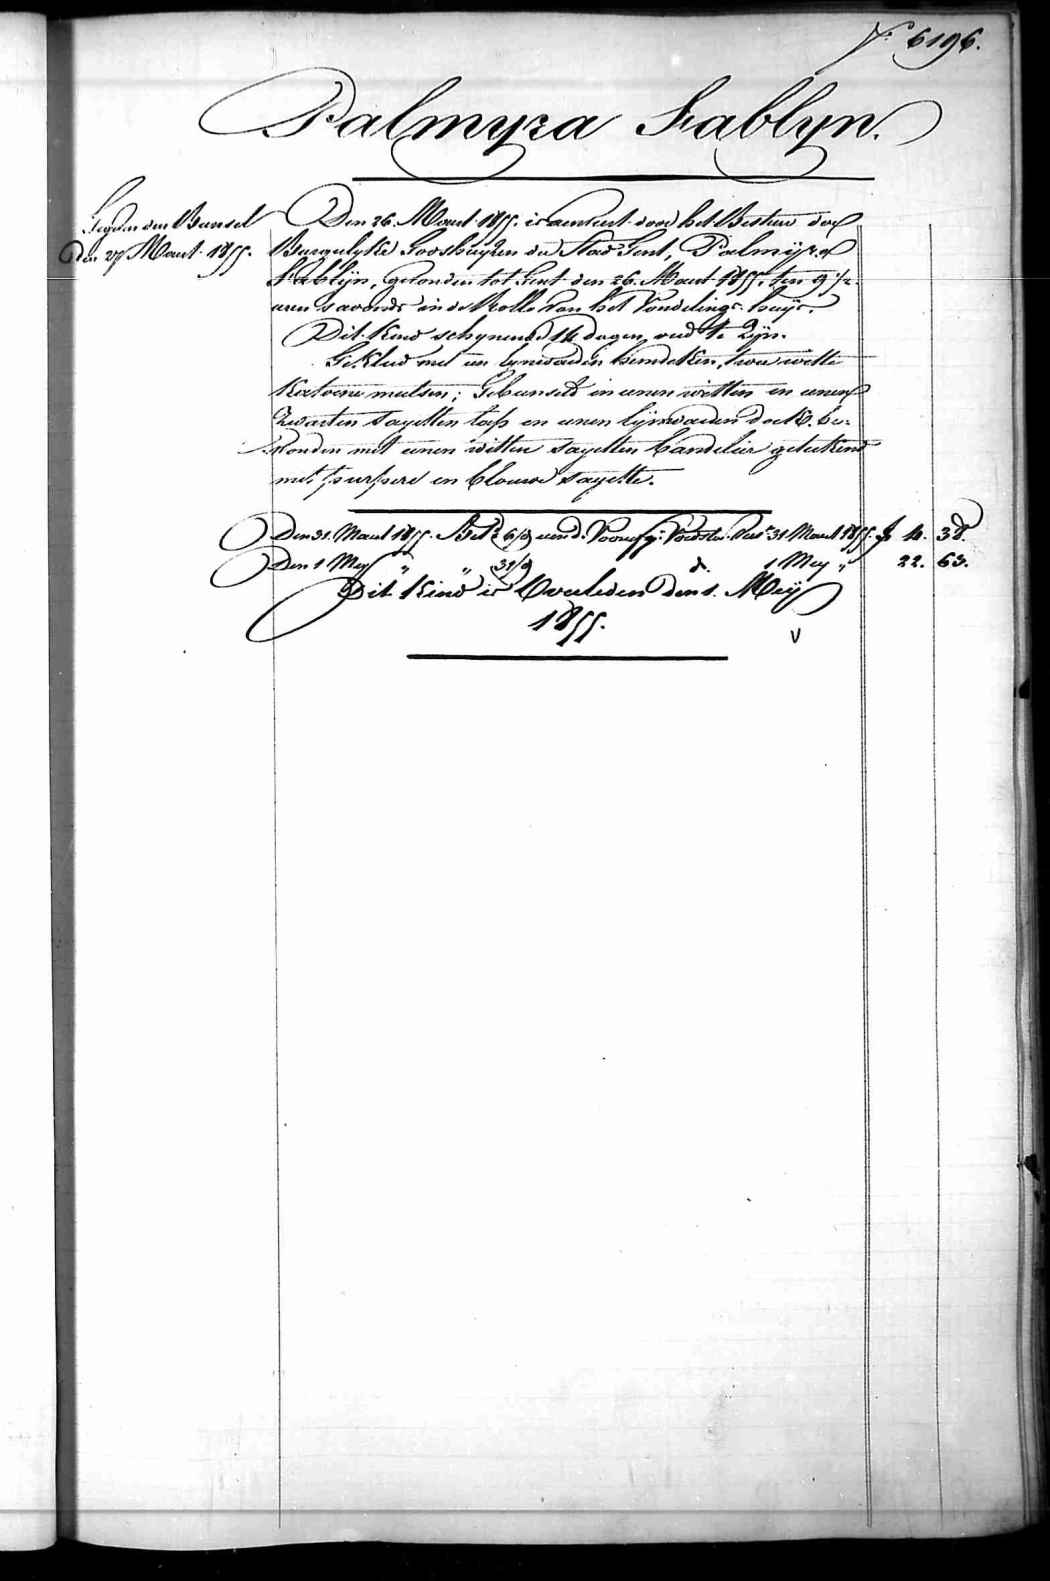 f.° 6196.
Palmyra Fablyn.
Gegeven den Bunsel
den 27 Maert 1855.
Den 26 Maert 1855. is aenveert door het Bestuer der
Burgerlyke Godshuyzen der Stad Gent, Palmÿra
Fablÿn, gevonden tot Gent den 26. Maert 1855, ten 9 1/2
uren s'avonds in de Rolle van het Vondelings-huÿs.
Dit Kind schynende 14 dagen oud te Zÿn.
Gekleed met een lynwaeden hemdeken, twee witte
Katoene mutsen; Gebunseld in eenen witten en eenen
Zwarten sayetten lap en eenen lÿnwaeden doek, be-
wonden met eenen witten sayetten bandelier geteekend
met purpere en blauwe sayette.
Den 31. Maert 1855. Bet. 6/9 aen d. Voorst. 31 Maert 1855. f 4. 38.
Den 1 Mey " " 31/9 d. 1 Mey " 22. 63.
Dit Kind is Overleden den 1. Meÿ
1855.
V